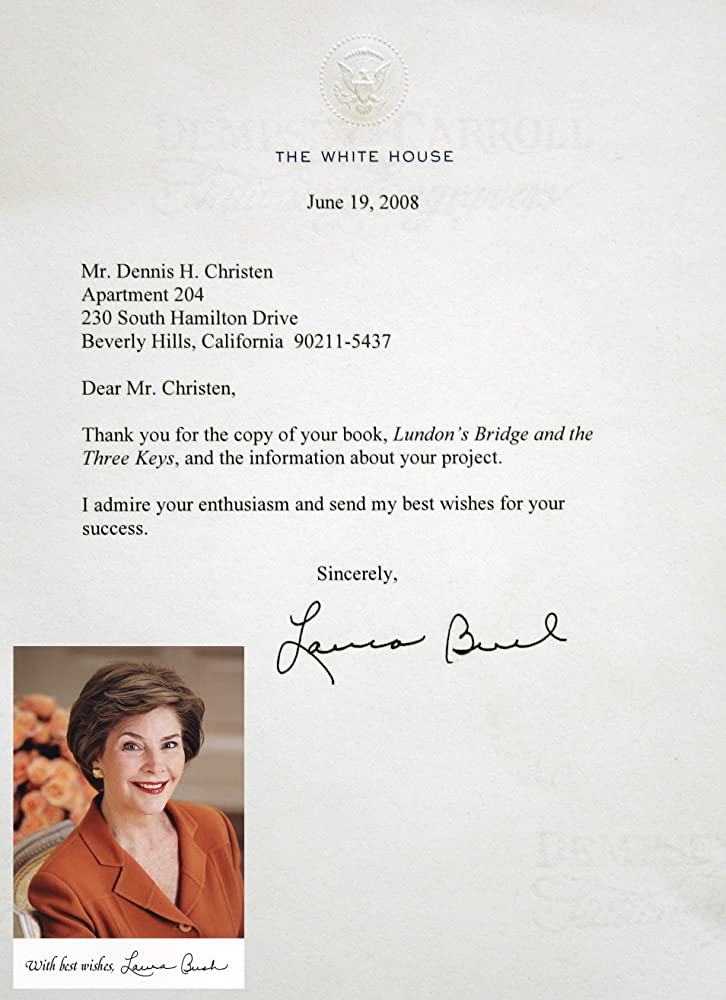 DEMPSEY & CARROLL
THE WHITE HOUSE
June 19, 2008
Mr. Dennis H. Christen
Apartment 204
230 South Hamilton Drive
Beverly Hills, California 90211-5437
Dear Mr. Christen,
Thank you for the copy of your book, Lundon's Bridge and the
Three Keys, and the information about your project.
I admire your enthusiasm and send my best wishes for your
success.
Sincerely,
Laura Bush
DEMPSEY
With best wishes, Laura Bush